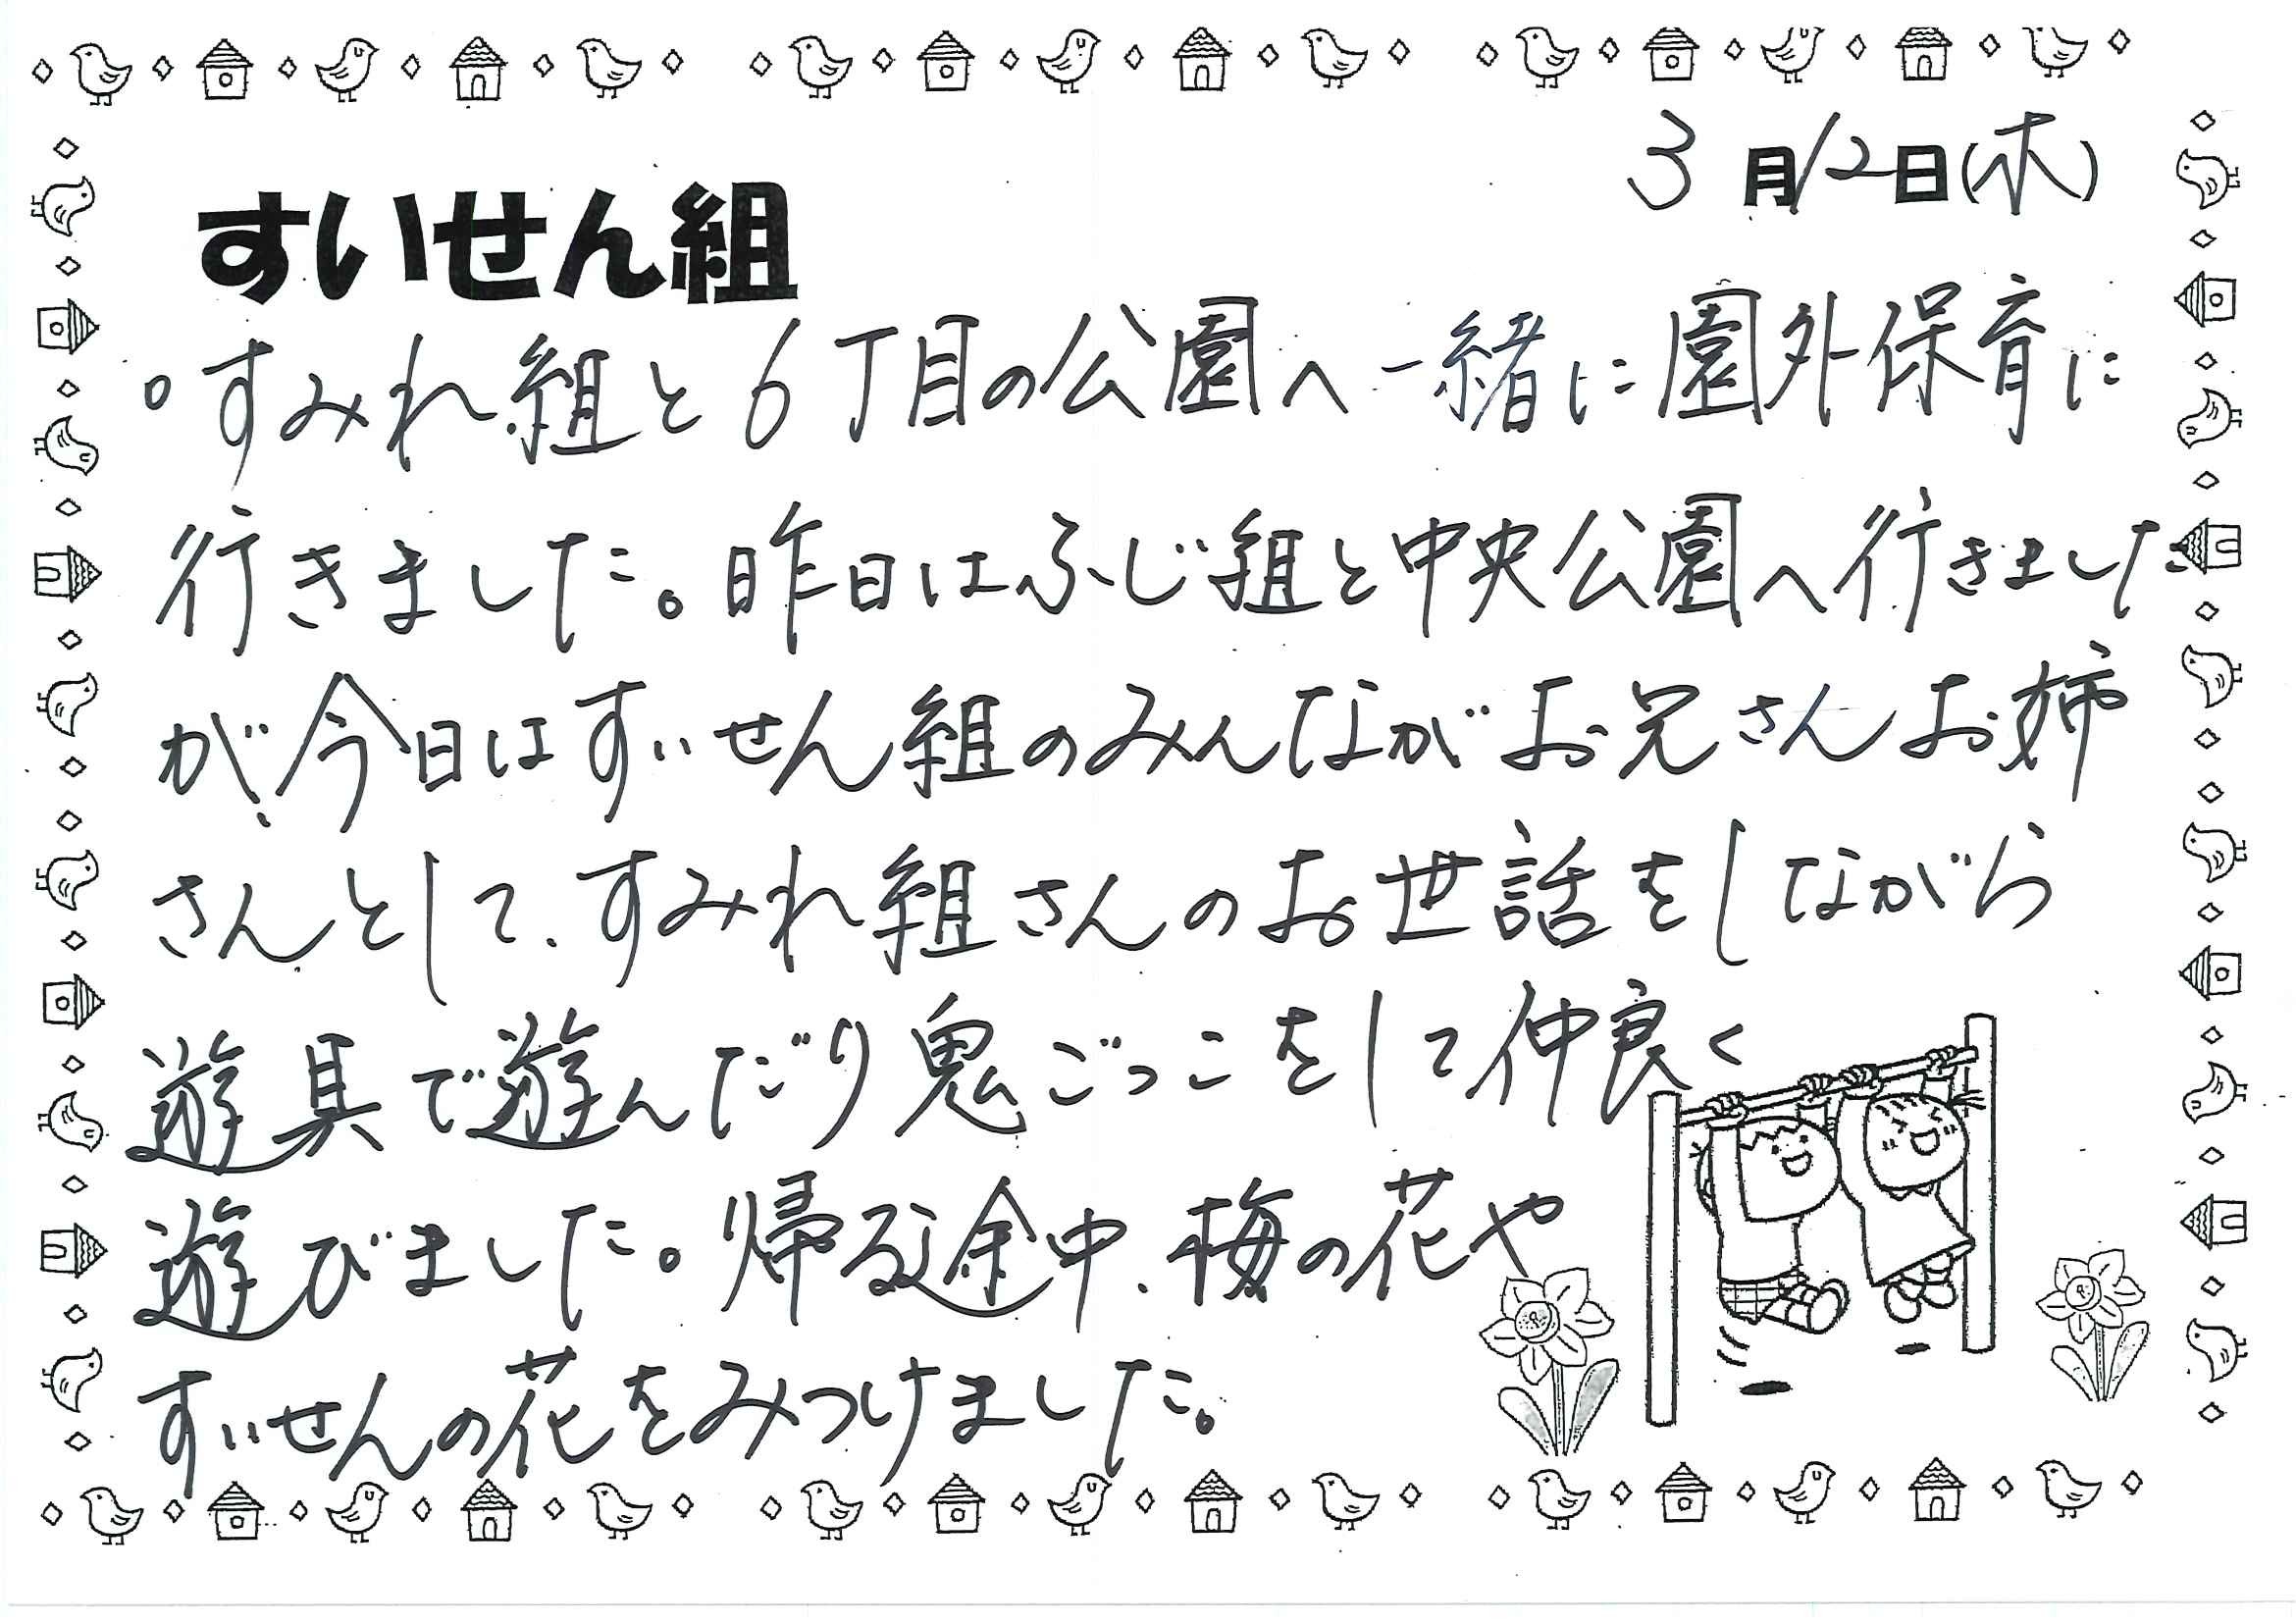 3月12日(木)
すいせん組
○すみれ組と6丁目の公園へ一緒に園外保育に
行きました。昨日はふじ組と中央公園へ行きました
が、今日はすいせん組のみんながお兄さんお姉
さんとして、すみれ組さんのお世話をしながら
遊具で遊んだり鬼ごっこをして仲良く
遊びました。帰る途中、梅の花や
すいせんの花をみつけました。